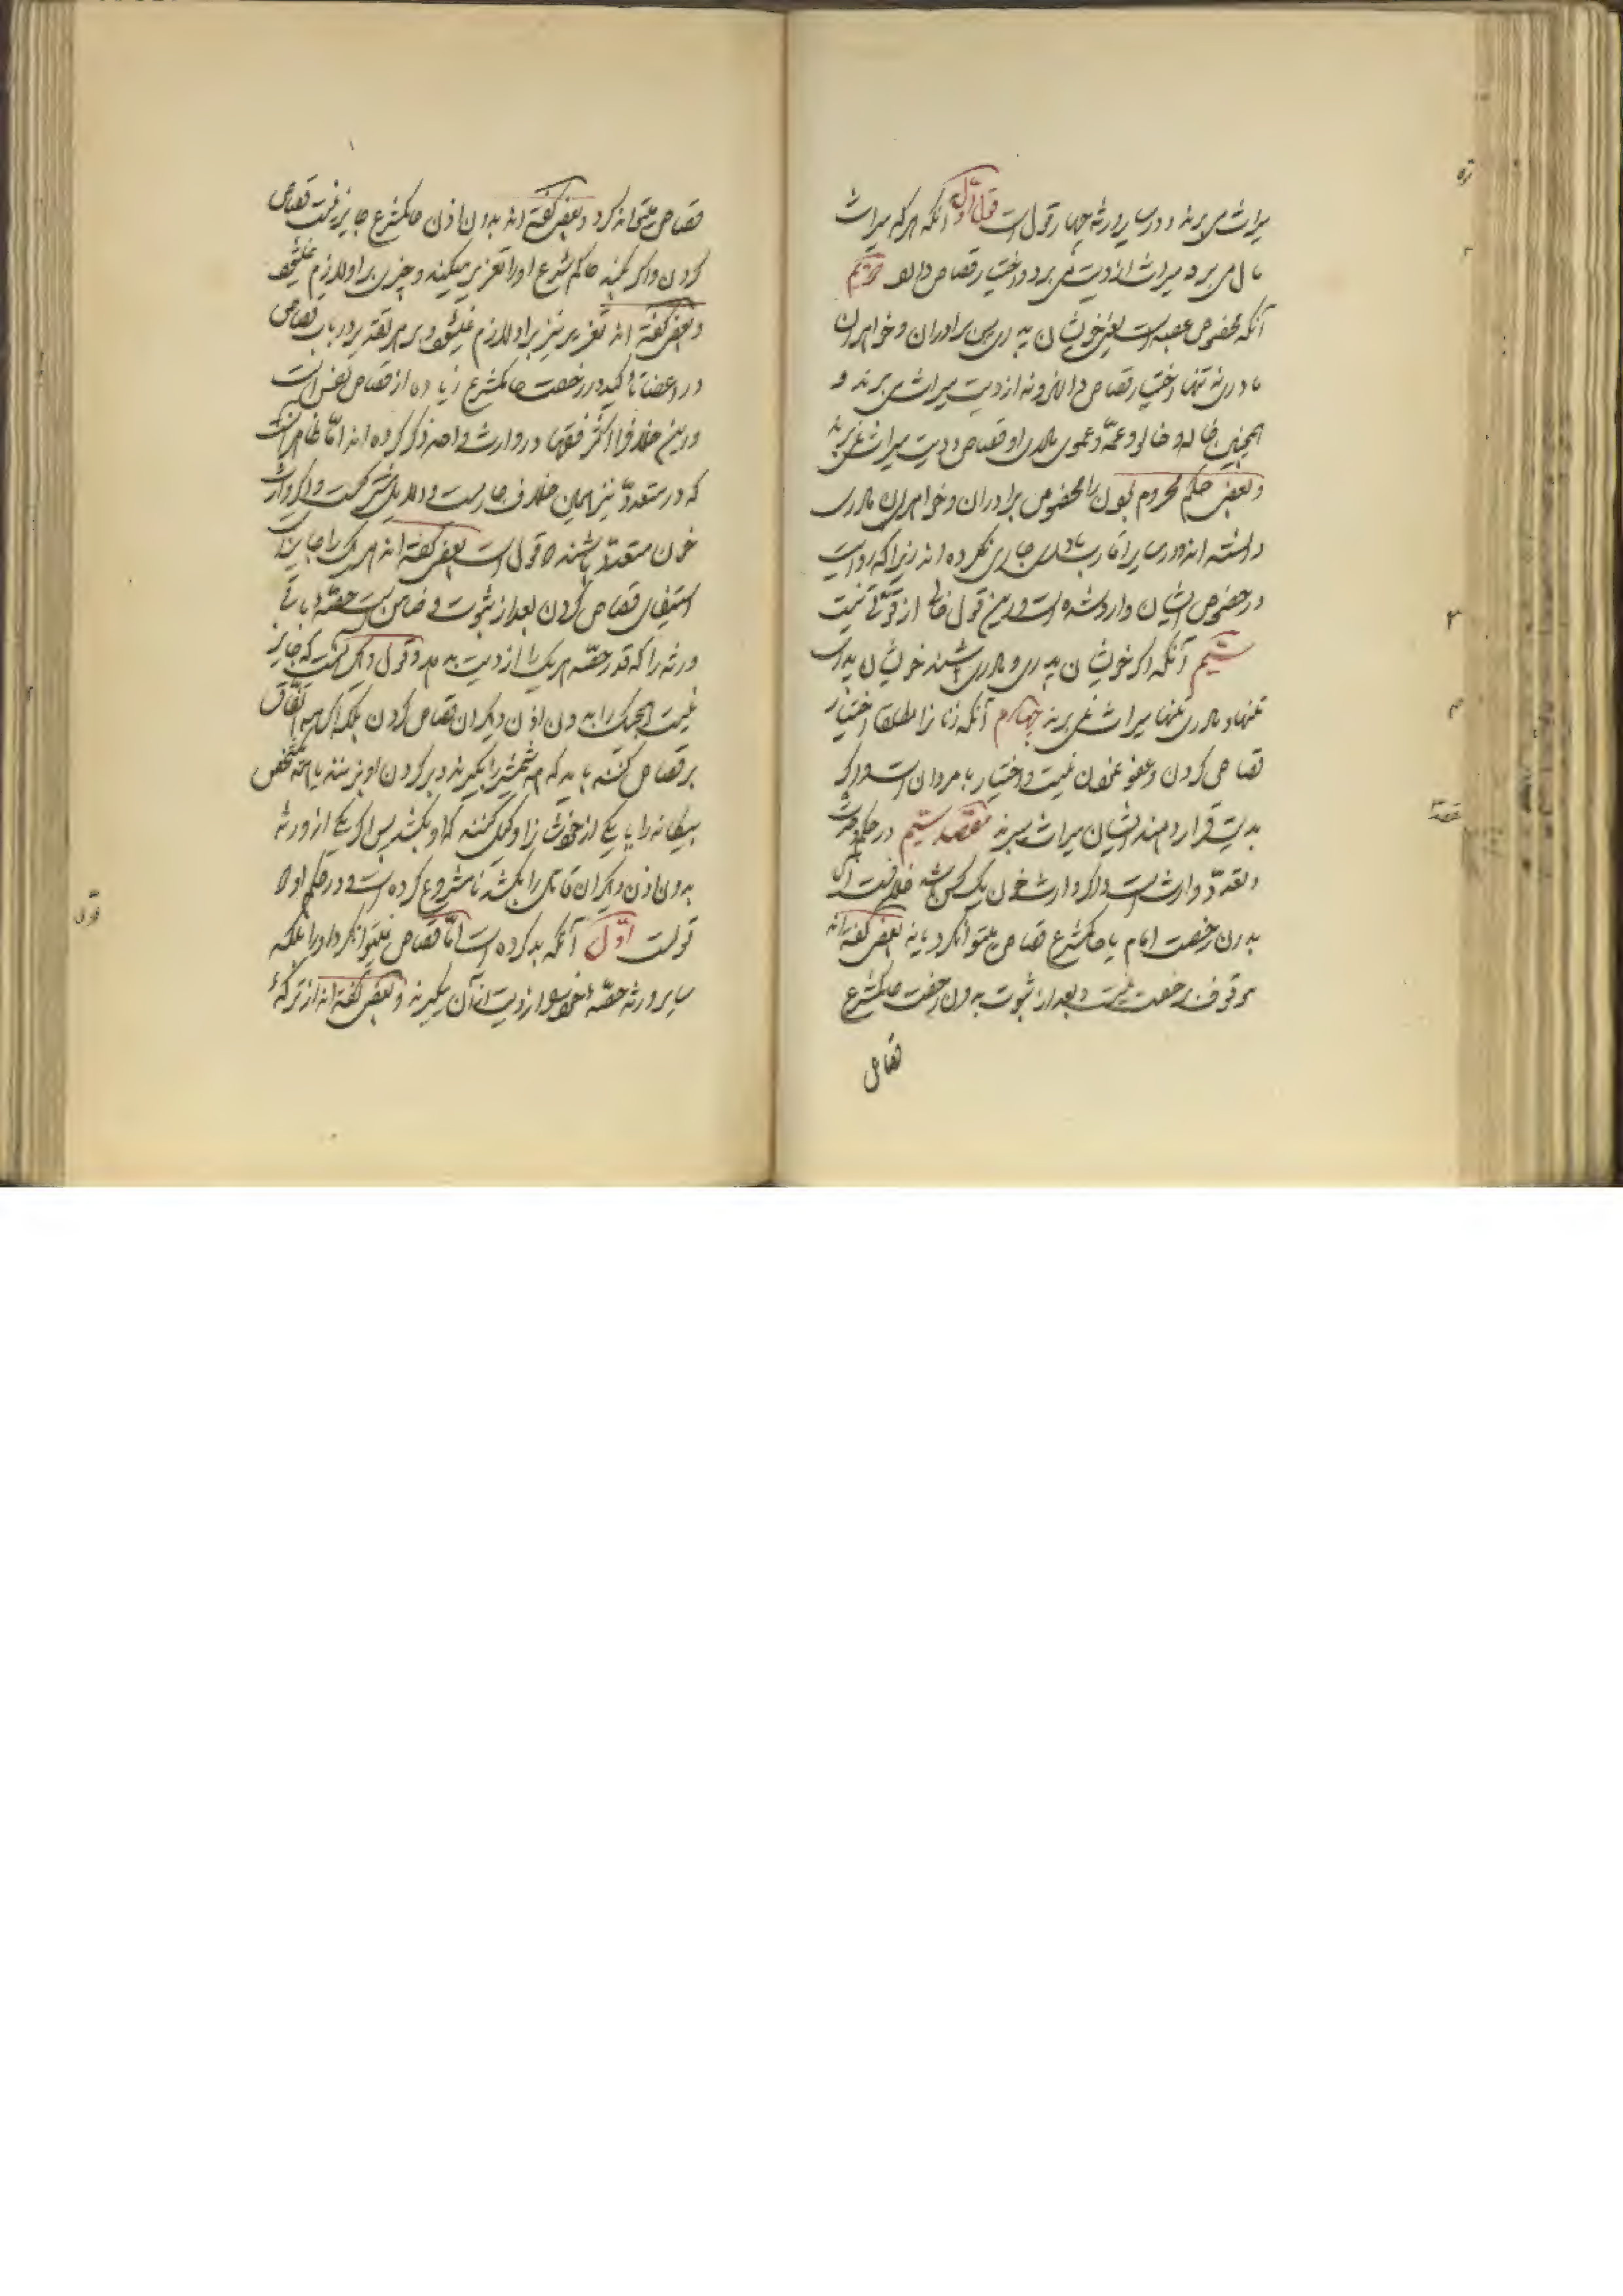 میراث می‌برند و در سایر ورثه چهار قول است قول اول آنکه هر که میراث
مال می‌برد میراث از دیت می‌برد و اختیار قصاص دارد دویم
آنکه مخصوص عصبه است یعنی خویشان پدری پس برادران و خواهران
مادری تنها اختیار قصاص ندارند و نه از دیت میراث می‌برند و
همچنین خاله و خالو و عمه و عموی مادری او قصاص و دیت میراث نمی‌برند
و بعضی حکم محروم بودن را مخصوص برادران و خواهران مادری
داشته‌اند و در سایر اقارب مادری جاری نکرده‌اند زیرا که روایت
در خصوص ایشان وارد شده است و این قول خالی از قوتی نیست
سیم آنکه اگر خویشان پدری و مادری باشند خویشان پدری
تنها و مادری تنها میراث نمی‌برند چهارم آنکه زنان را مطلقا اختیار
قصاص کردن و عفو نمودن نیست و اختیار با مردان است و اگر
بدیت قرار دهند ایشان میراث میبرند مقصد سیم در حکم وحدت
و تعدد وارث است و اگر وارث خون یک کس باشد خلافست که
بدون رخصت امام یا حاکم شرع قصاص میتواند کرد یا نه بعضی گفته‌اند
موقوف برخصت نیست و بعد از ثبوت بدون رخصت حاکم شرع
قصاص
قصاص میتواند کرد و بعضی گفته‌اند بدون اذن حاکم شرع جایز نیست قصاص
کردن و اگر بکند حاکم شرع او را تعزیر میکند و چیزی بر او لازم نمیشود
و بعضی گفته‌اند تعزیر نیز بر او لازم نمیشود و بر هر تقدیر در باب قصاص
در اعضا تاکید در رخصت حاکم شرع زیاده از قصاص نفس است
و این خلاف را اکثر فقها در وارث واحد ذکر کرده‌اند اما ظاهر آنست
که در متعدد نیز همین خلاف جاریست و دلایل مشترکست و اگر وارث
خون متعدد باشند دو قول است بعضی گفته‌اند هر یک را جایز است
استیفای قصاص کردن بعد از ثبوت و ضامن است حصه باقی
ورثه را که قدر حصه هر یک را از دیت بدهد و قول دیگر آنست که جایز
نیست هیچیک را بدون اذن دیگران قصاص کردن بلکه اگر همه اتفاق
بر قصاص کنند باید که همه شمشیر را بگیرند و بر گردن او بزنند یا همه شخص
بیگانه را یا یکی از خودشان را وکیل کنند که او بکشد پس اگر یکی از ورثه
بدون اذن دیگران قاتل را بکشد نامشروع کرده است و در حکم او دو
قولست اول آنکه بد کرده است اما قصاص نمیتوان کرد او را بلکه
سایر ورثه حصه خود را از دیت از آن میگیرند و بعضی گفته‌اند از ترکهٔ